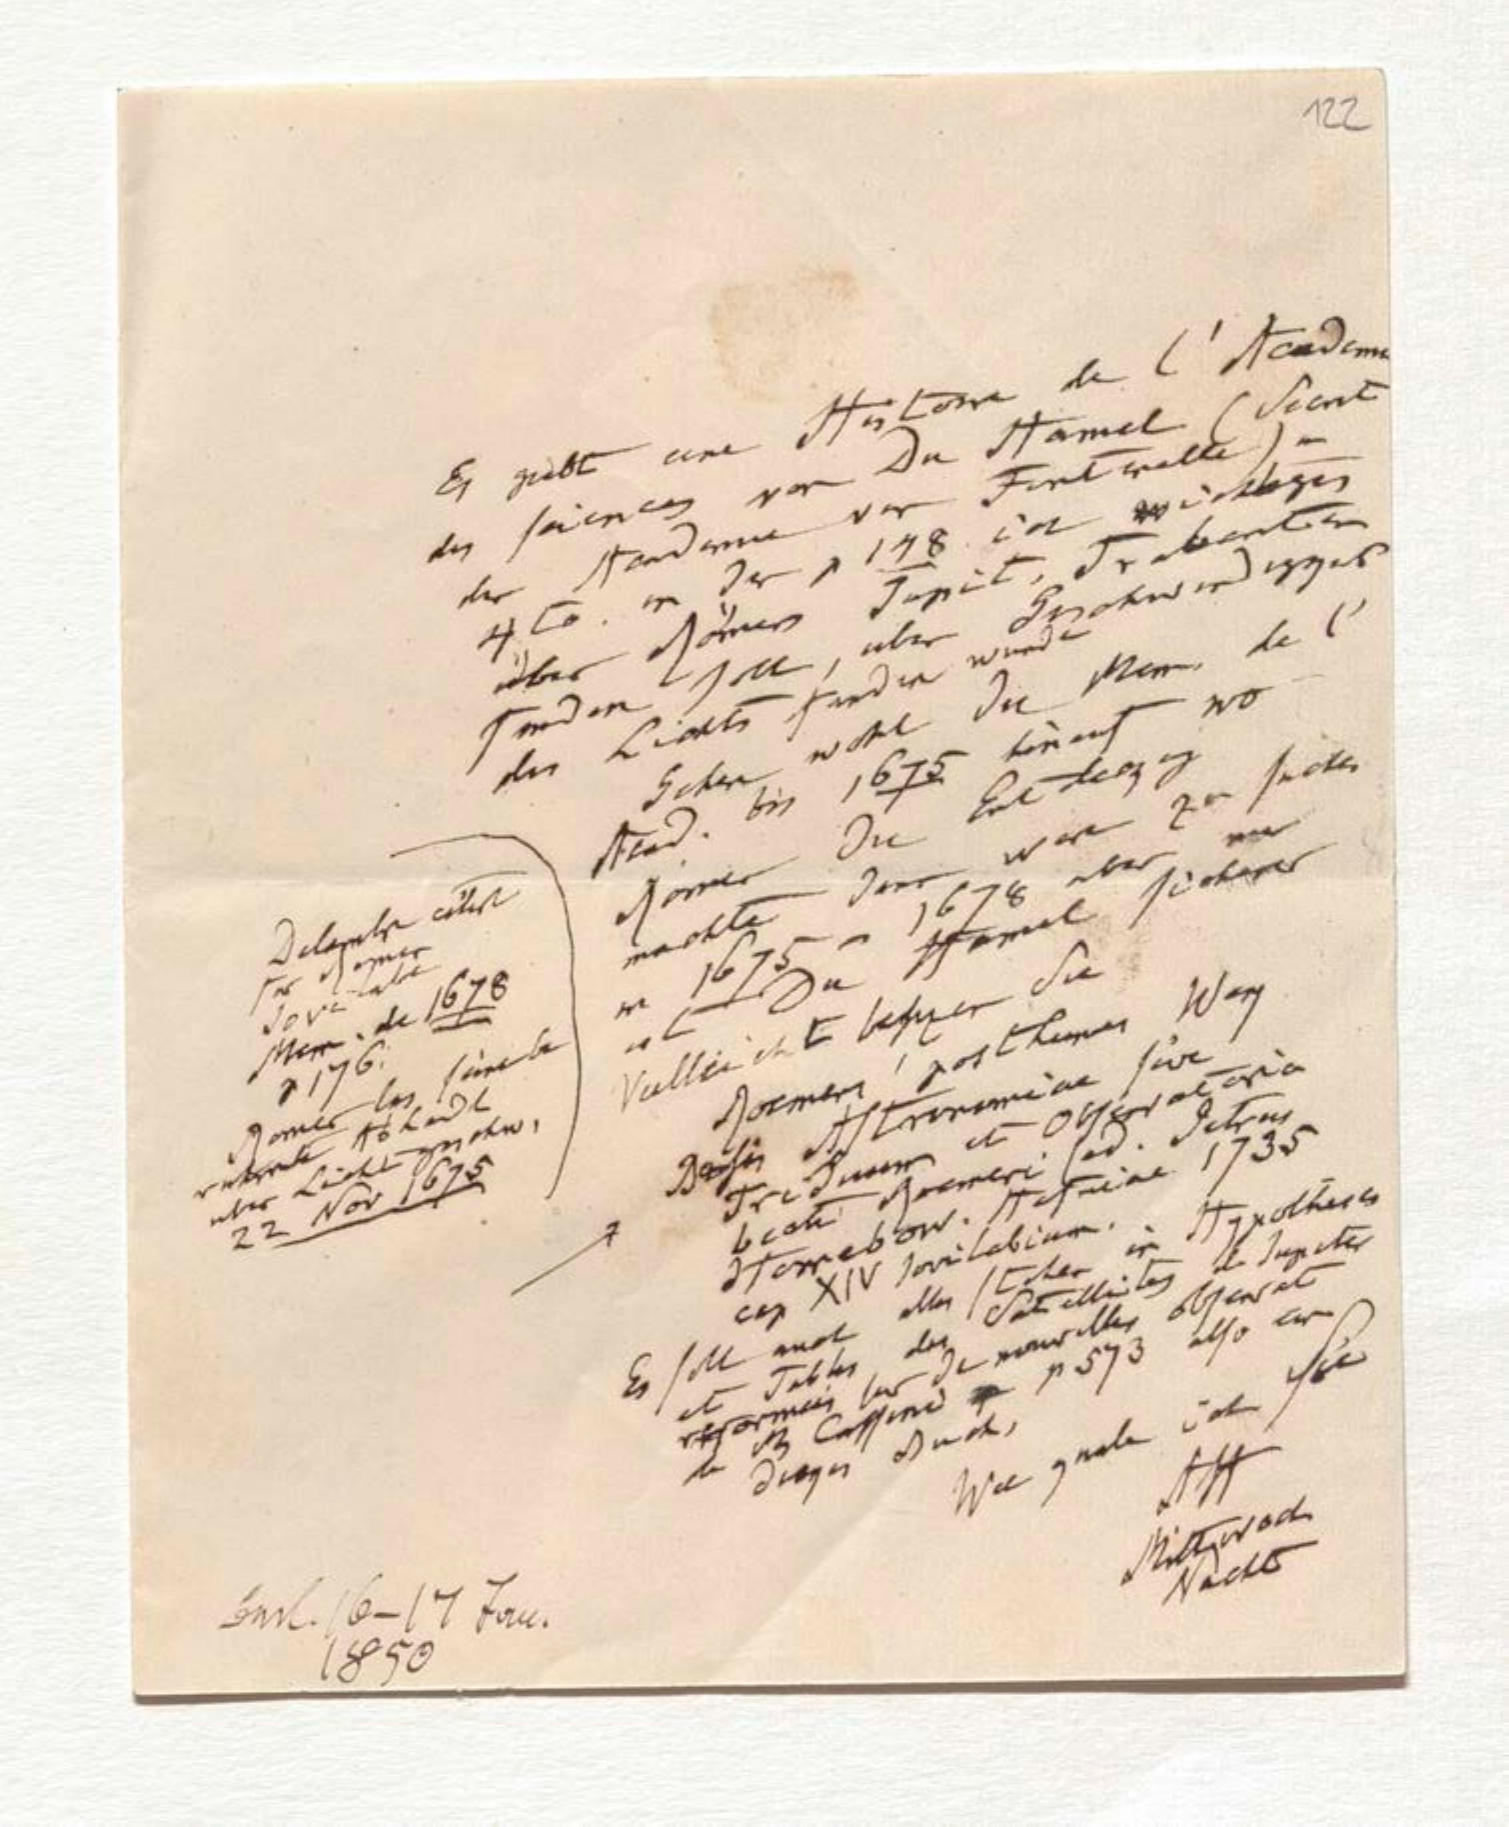 122
Es giebt eine Histoire de l'Academie
des sciences von Du Hamel (Secret
der Academie vor Fontenelle) in
4to. in der p 148 ich wichtiges
über Römers Jupit. Trabanten
finden soll, über Geschwindigkeit
des Lichts finden würde
Gehen wohl die Mem. de l'
Acad. bis 1675 hinauf wo
Römer die Entdeckung
machte dann wäre zu suchen
in 1675 – 1678 aber mir
ist Du Hamel sicherer
Vielleicht besitzen Sie
Roemers posthumes Werk
Basis Astronomiae sive
Triduum et Observatoria
beati Roemeri (ed. Petrus
Horrebow. Hafniae 1735
cap XIV Jovilabium.
Es soll auch alles stehen in Hypotheses
et Tables des Satellites de Jupiter
reformées sur de nouvelles observat
de Mr Cassini p 573 also ein
dickes Buch,
Wie quäle ich Sie
AHt
Mittwoch
Nachts
Delambre citirt
für Römer
Jovilabe
Mem. de 1678
p 176.
Römer las seine
Abhandl
über Lichtgeschw.
22 Nov 1675
16–17 Jan.
1850